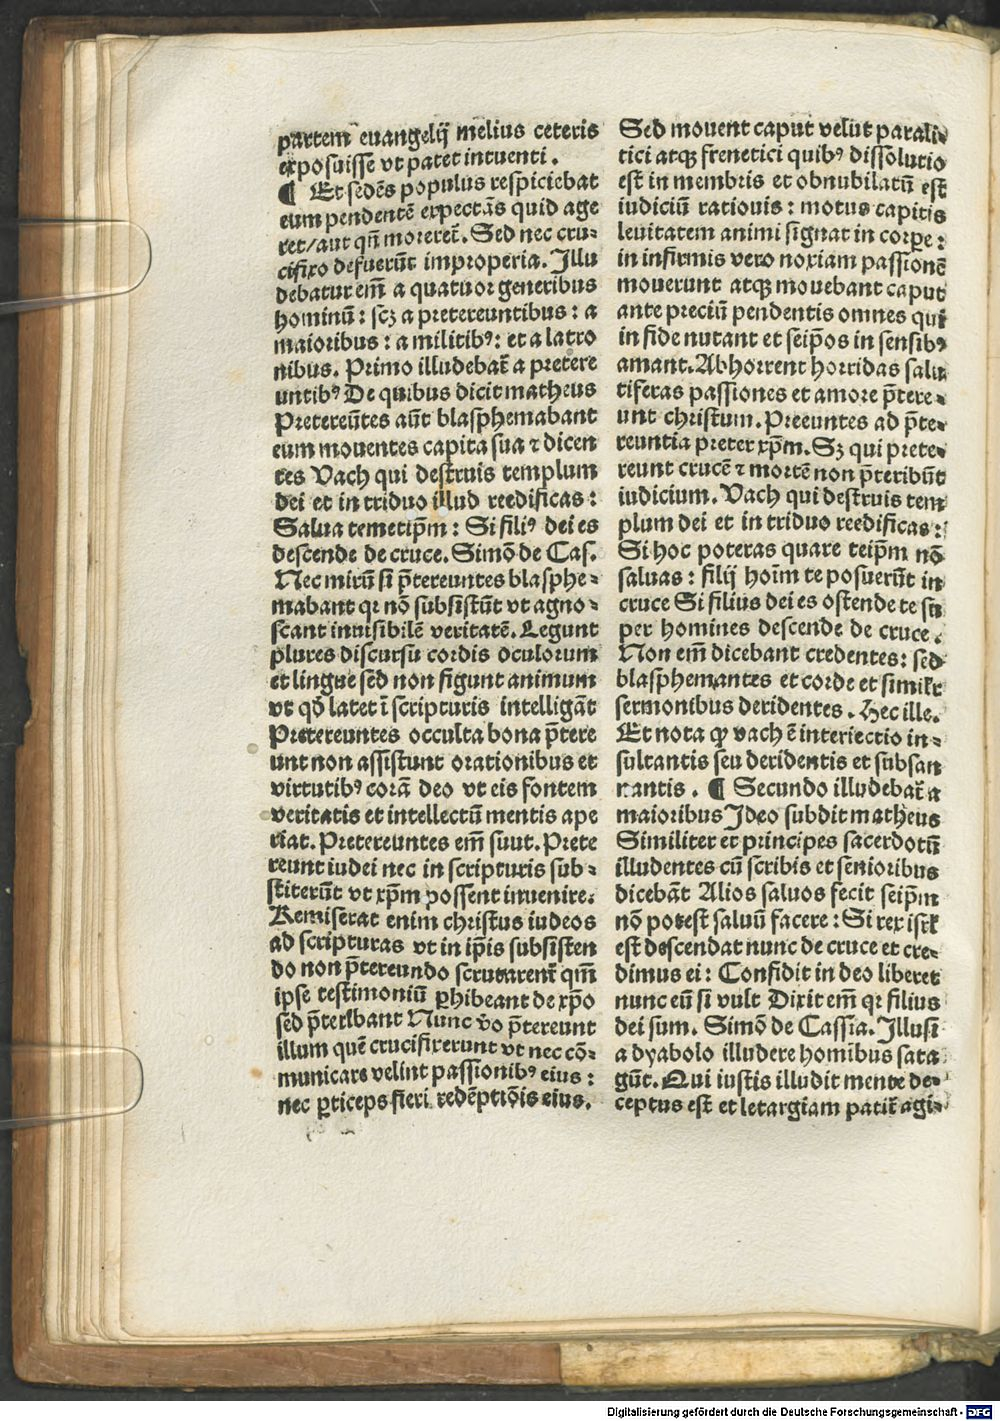 partem euangelij melius ceteris
exposuisse vt patet intuenti.
¶ Et sedēs populus respiciebat
eum pendentē expectās quid age
ret/aut qn̄ moreret̄. Sed nec cru⸗
cifixo defuerūt improperia. Illu
debatur em̄ a quatuor generibus
hominū: scꝫ a pretereuntibus: a
maioribus: a militibꝰ: et a latro
nibus. Primo illudebat̄ a pretere
untibꝰ De quibus dicit matheus
Pretereūtes aūt blasphemabant
eum mouentes capita sua ⁊ dicen
tes Vach qui destruis templum
dei et in triduo illud reedificas:
Salua temetip̄m: Si filiꝰ dei es
descende de cruce. Simō de Cas.
Nec mirū si p̄tereuntes blasphe⸗
mabant qꝛ nō subsistūt vt agno⸗
scant inuisibilē veritatē. Legunt
plures discursu cordis oculorum
et lingue sed non figunt animum
vt qd̄ latet ī scripturis intelligāt
Pretereuntes occulta bona p̄tere
unt non assistunt orationibus et
virtutibꝰ corā deo vt eis fontem
veritatis et intellectū mentis ape
riat. Pretereuntes em̄ suut. Prete
reunt iudei nec in scripturis sub⸗
stiterūt vt xp̄m possent inuenire.
Remiserat enim christus iudeos
ad scripturas vt in ip̄is subsisten
do non p̄tereundo scrutarent̄ qm̄
ipse testimoniū ꝑhibeant de xp̄o
sed p̄teribant Nunc v̄o p̄tereunt
illum quē crucifixerunt vt nec cō⸗
municare velint passionibꝰ eius:
nec ꝑticeps fieri redēptiōis eius.
Sed mouent caput velut parali⸗
tici atqꝫ frenetici quibꝰ dissolutio
est in membris et obnubilatū est
iudiciū rationis: motus capitis
leuitatem animi signat in corꝑe:
in infirmis vero noxiam passionē
mouerunt atqꝫ mouebant caput
ante preciū pendentis omnes qui
in fide nutant et seip̄os in sensibꝰ
amant. Abhorrent horridas salu
tiferas passiones et amore p̄tere⸗
unt christum. Preeuntes ad p̄te⸗
reuntia preter xp̄m. Sꝫ qui prete⸗
reunt crucē ⁊ mortē non p̄teribūt
iudicium. Vach qui destruis tem
plum dei et in triduo reedificas:
Si hoc poteras quare teip̄m nō
saluas: filij hoīm te posuerūt in
cruce Si filius dei es ostende te su
per homines descende de cruce.
Non em̄ dicebant credentes: sed
blasphemantes et corde et simiľr
sermonibus deridentes. Hec ille.
Et nota ꝙ vach ē interiectio in⸗
sultantis seu deridentis et subsan
nantis. ¶ Secundo illudebat̄ a
maioribus Ideo subdit matheus
Similiter et principes sacerdotū
illudentes cū scribis et senioribus
dicebāt Alios saluos fecit seip̄m
nō potest saluū facere: Si rex isrł
est descendat nunc de cruce et cre⸗
dimus ei: Confidit in deo liberet
nunc eū si vult Dixit em̄ qꝛ filius
dei sum. Simō de Cassia. Illusi
a dyabolo illudere homībus sata
gūt. Qui iustis illudit mente de⸗
ceptus est et letargiam patit̄ agi⸗
Digitalisierung gefördert durch die Deutsche Forschungsgemeinschaft - DFG